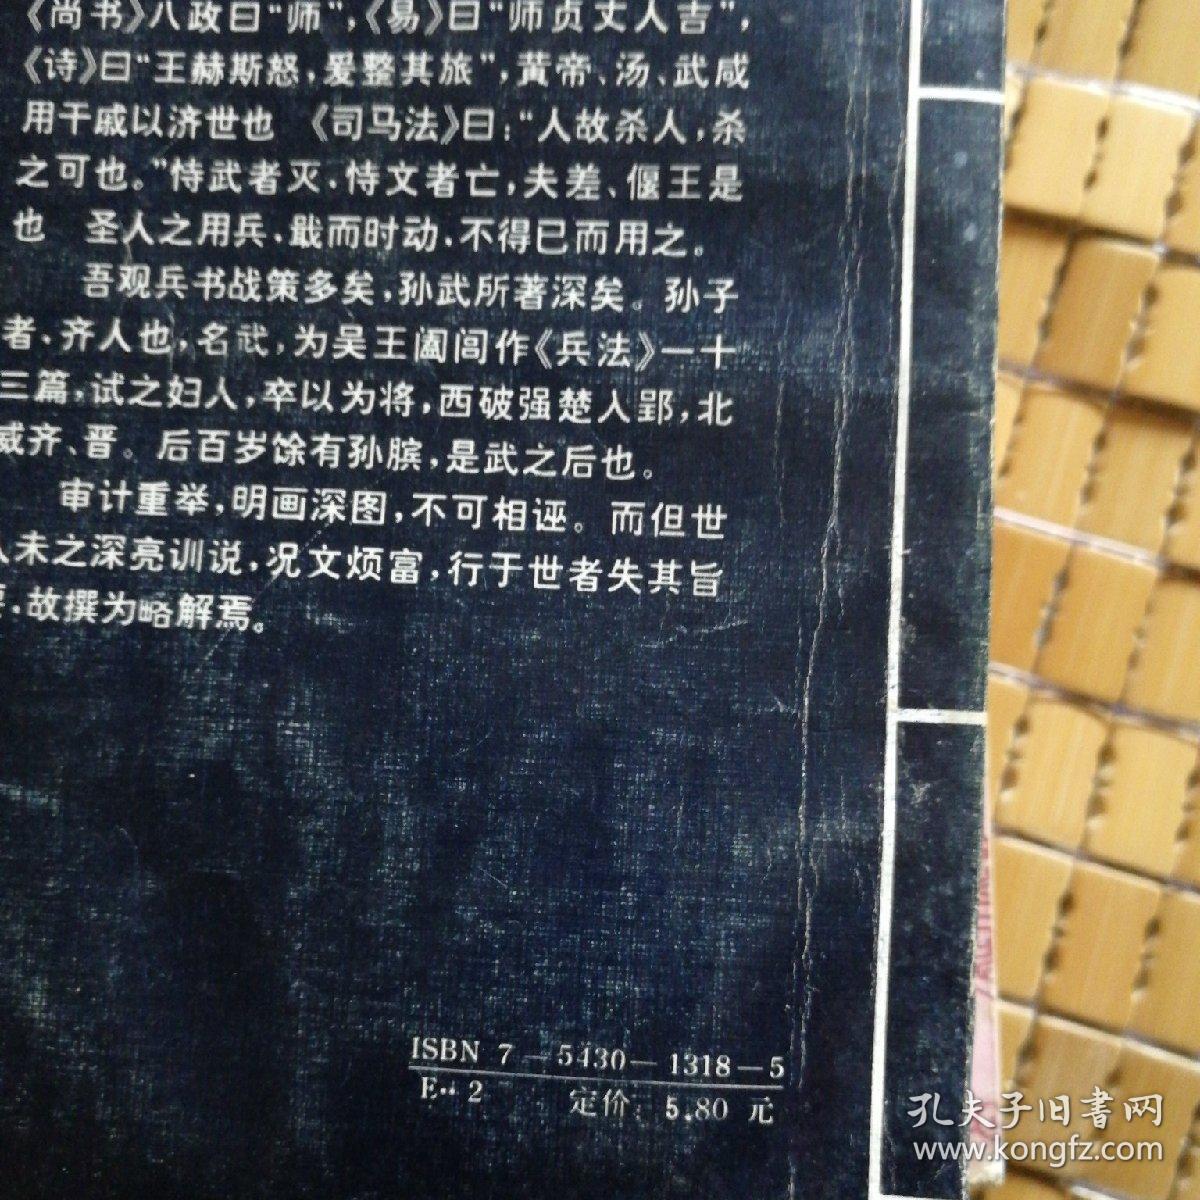 《尚书》八政曰“师”，《易》曰“师贞丈人吉”，
《诗》曰“王赫斯怒，爰整其旅”，黄帝、汤、武咸
用干戚以济世也 《司马法》曰：“人故杀人，杀
之可也。”恃武者灭，恃文者亡，夫差、偃王是
也 圣人之用兵，戢而时动，不得已而用之。
吾观兵书战策多矣，孙武所著深矣。孙子
者，齐人也，名武，为吴王阖闾作《兵法》一十
三篇，试之妇人，卒以为将，西破强楚入郢，北
威齐、晋。后百岁馀有孙膑，是武之后也。
审计重举，明画深图，不可相诬。而但世
人未之深亮训说，况文烦富，行于世者失其旨
要，故撰为略解焉。
ISBN 7－5430－1318－5
E·2 定价：5.80 元
孔夫子旧書网
www.kongfz.com